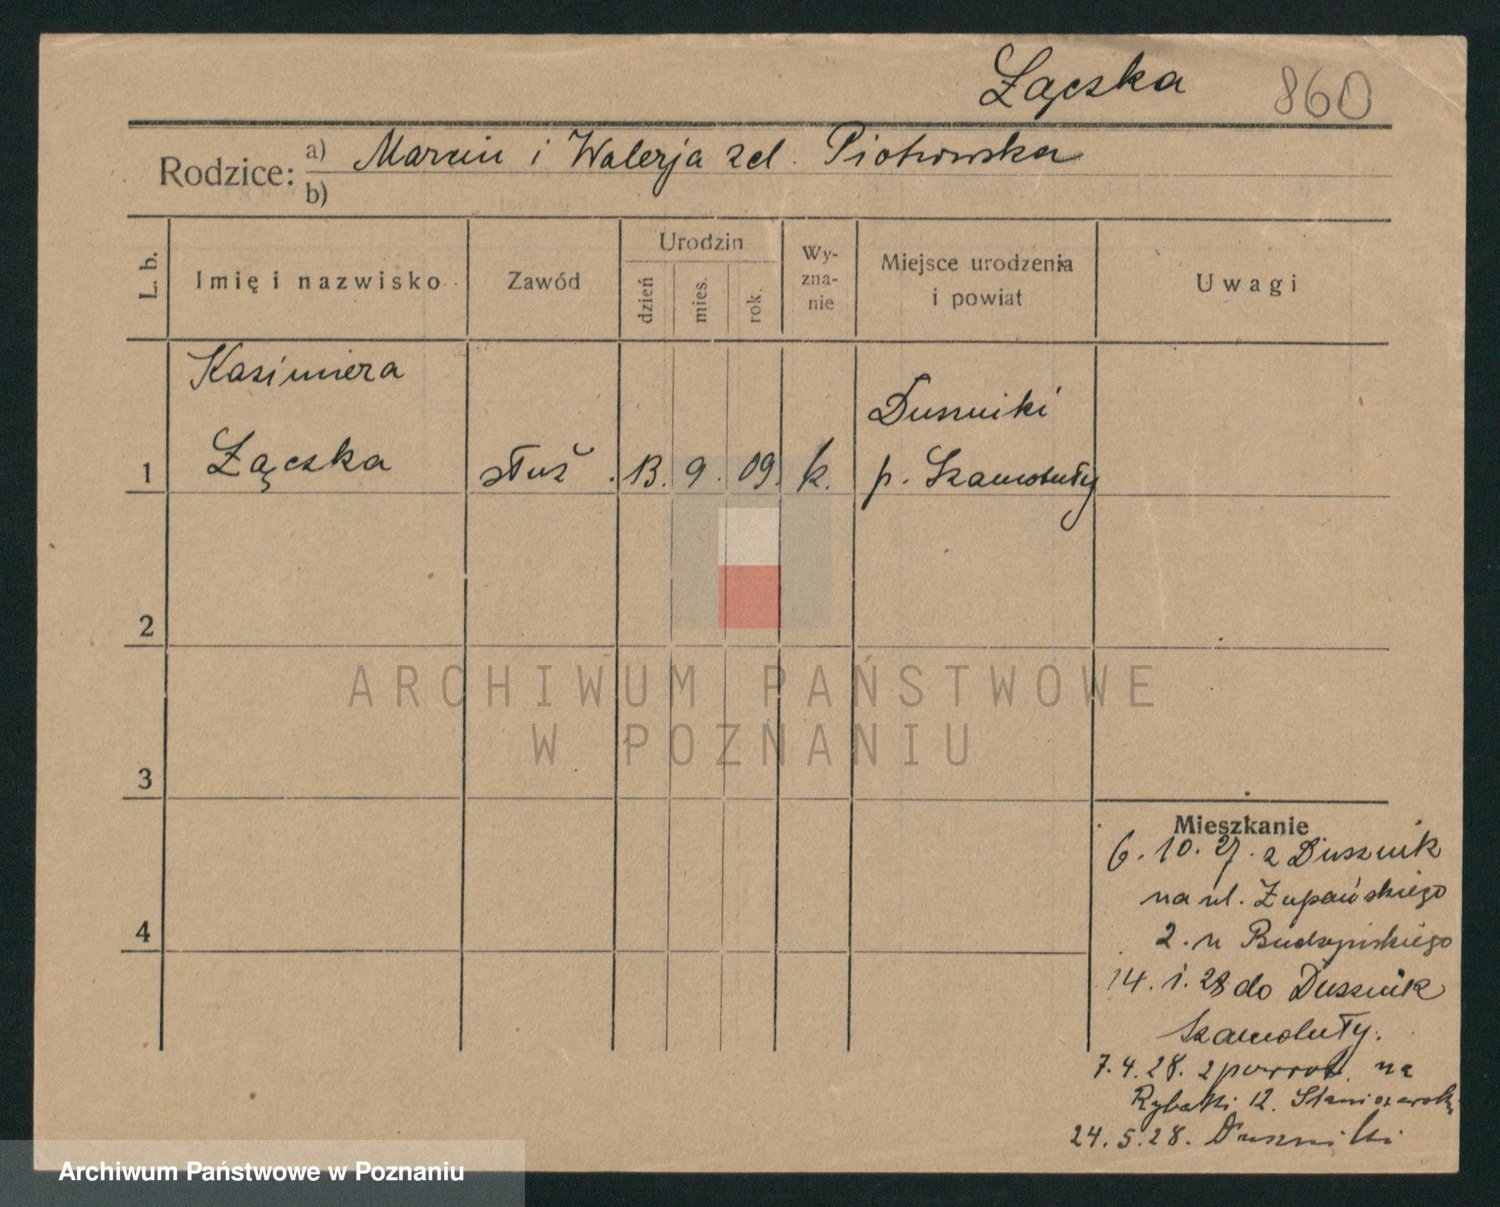 Łączska 860
Rodzice: a) Marcin i Walerja zd. Piotrowska
b)
L. b.
Imię i nazwisko
Zawód
Urodzin
dzień
mies.
rok.
Wy-
zna-
nie
Miejsce urodzenia
i powiat
Uwagi
Kasimiera
Łączska
1
służ.
13. 9. 09.
k.
Duszniki
p. Szamotuły
2
3
4
Mieszkanie
6. 10. 27. z Dusznik
na ul. Żupańskiego
2. u Budzyńskiego
14. 1. 28 do Dusznik
Szamotuły.
7. 4. 28. z powrot. na
Rybaki 12.
24. 5. 28. Duszniki
ARCHIWUM PAŃSTWOWE
W POZNANIU
Archiwum Państwowe w Poznaniu